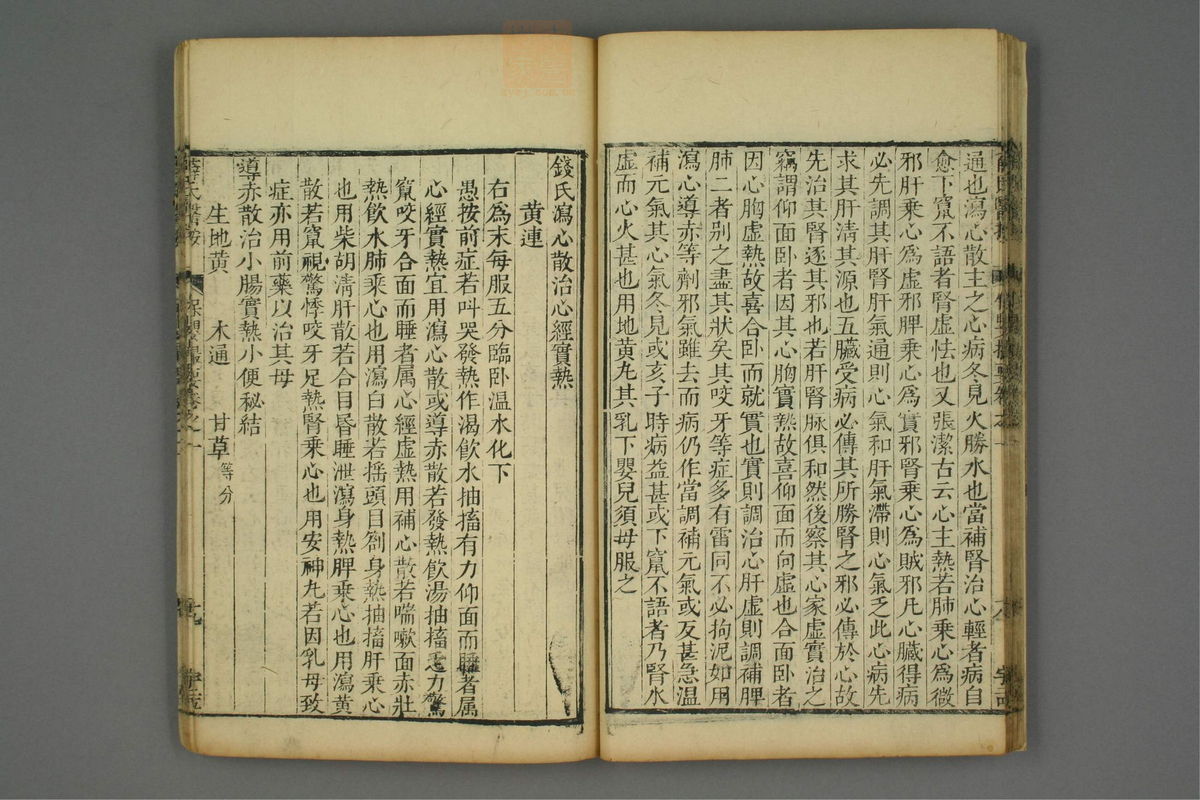 通也瀉心散主之心病冬見火勝水也當補腎治心輕者病自
愈下竄不語者腎虛怯也又張潔古云心主熱若肺乘心為微
邪肝乘心為虛邪脾乘心為實邪腎乘心為賊邪凡心臟得病
必先調其肝腎肝氣通則心氣和肝氣滯則心氣乏此心病先
求其肝清其源也五臟受病必傳其所勝腎之邪必傳於心故
先治其腎逐其邪也若肝腎脉俱和然後察其心家虛實治之
竊謂仰面卧者因其心胸實熱故喜仰面而向虛也合面卧者
因心胸虛熱故喜合卧而就實也實則調治心肝虛則調補脾
肺二者別之盡其狀矣其咬牙等症多有雷同不必拘泥如用
瀉心導赤等劑邪氣雖去而病仍作當調補元氣或反甚急溫
補元氣其心氣冬見或亥子時病益甚或下竄不語者乃腎水
虛而心火甚也用地黄丸其乳下嬰兒須母服之
錢氏瀉心散治心經實熱
黄連
右為末每服五分臨卧温水化下
愚按前症若叫哭發熱作渴飲水抽搐有力仰面而睡者属
心經實熱宜用瀉心散或導赤散若發熱飲湯抽搐乏力驚
竄咬牙合面而睡者属心經虛熱用補心散若喘嗽面赤壯
熱飲水肺乘心也用瀉白散若揺頭目劄身熱抽搐肝乘心
也用柴胡清肝散若合目昏睡泄瀉身熱脾乘心也用瀉黄
散若竄視驚悸咬牙足熱腎乘心也用安神丸若因乳母致
症亦用前藥以治其母
導赤散治小腸實熱小便秘結
生地黄 木通 甘草等分
薛氏醫按 保嬰撮要卷之一 十九